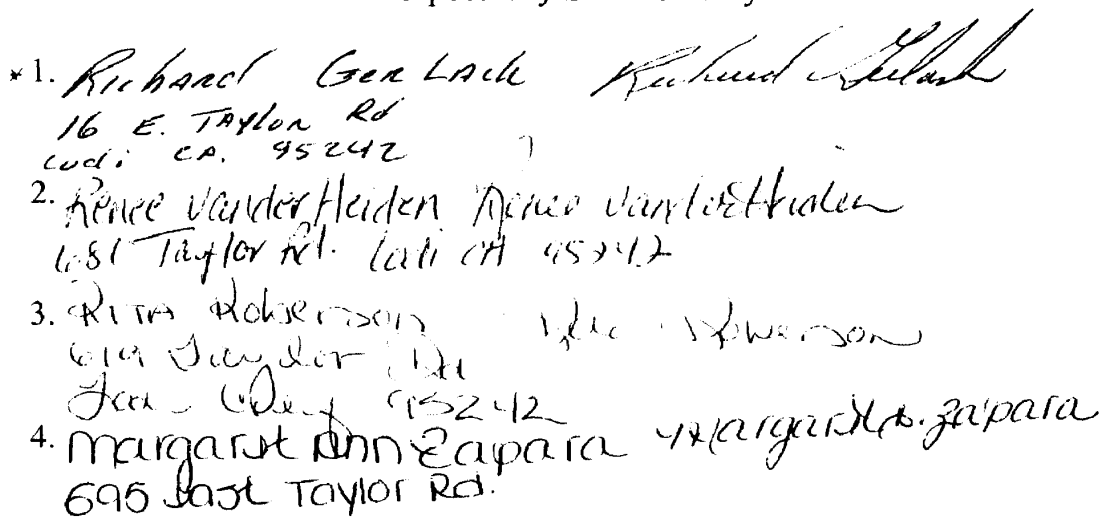 *1. Richard Gerlach Richard Gerlach
16 E. Taylor Rd
Lodi CA. 95242
2. Renee VanderHeiden Renee VanderHeiden
681 Taylor Rd. Lodi CA 95242
3. Rita Roberson Roberson
619 Taylor Rd
95242
4. Margaret Ann Zapara Margaret A. Zapara
695 East Taylor Rd.